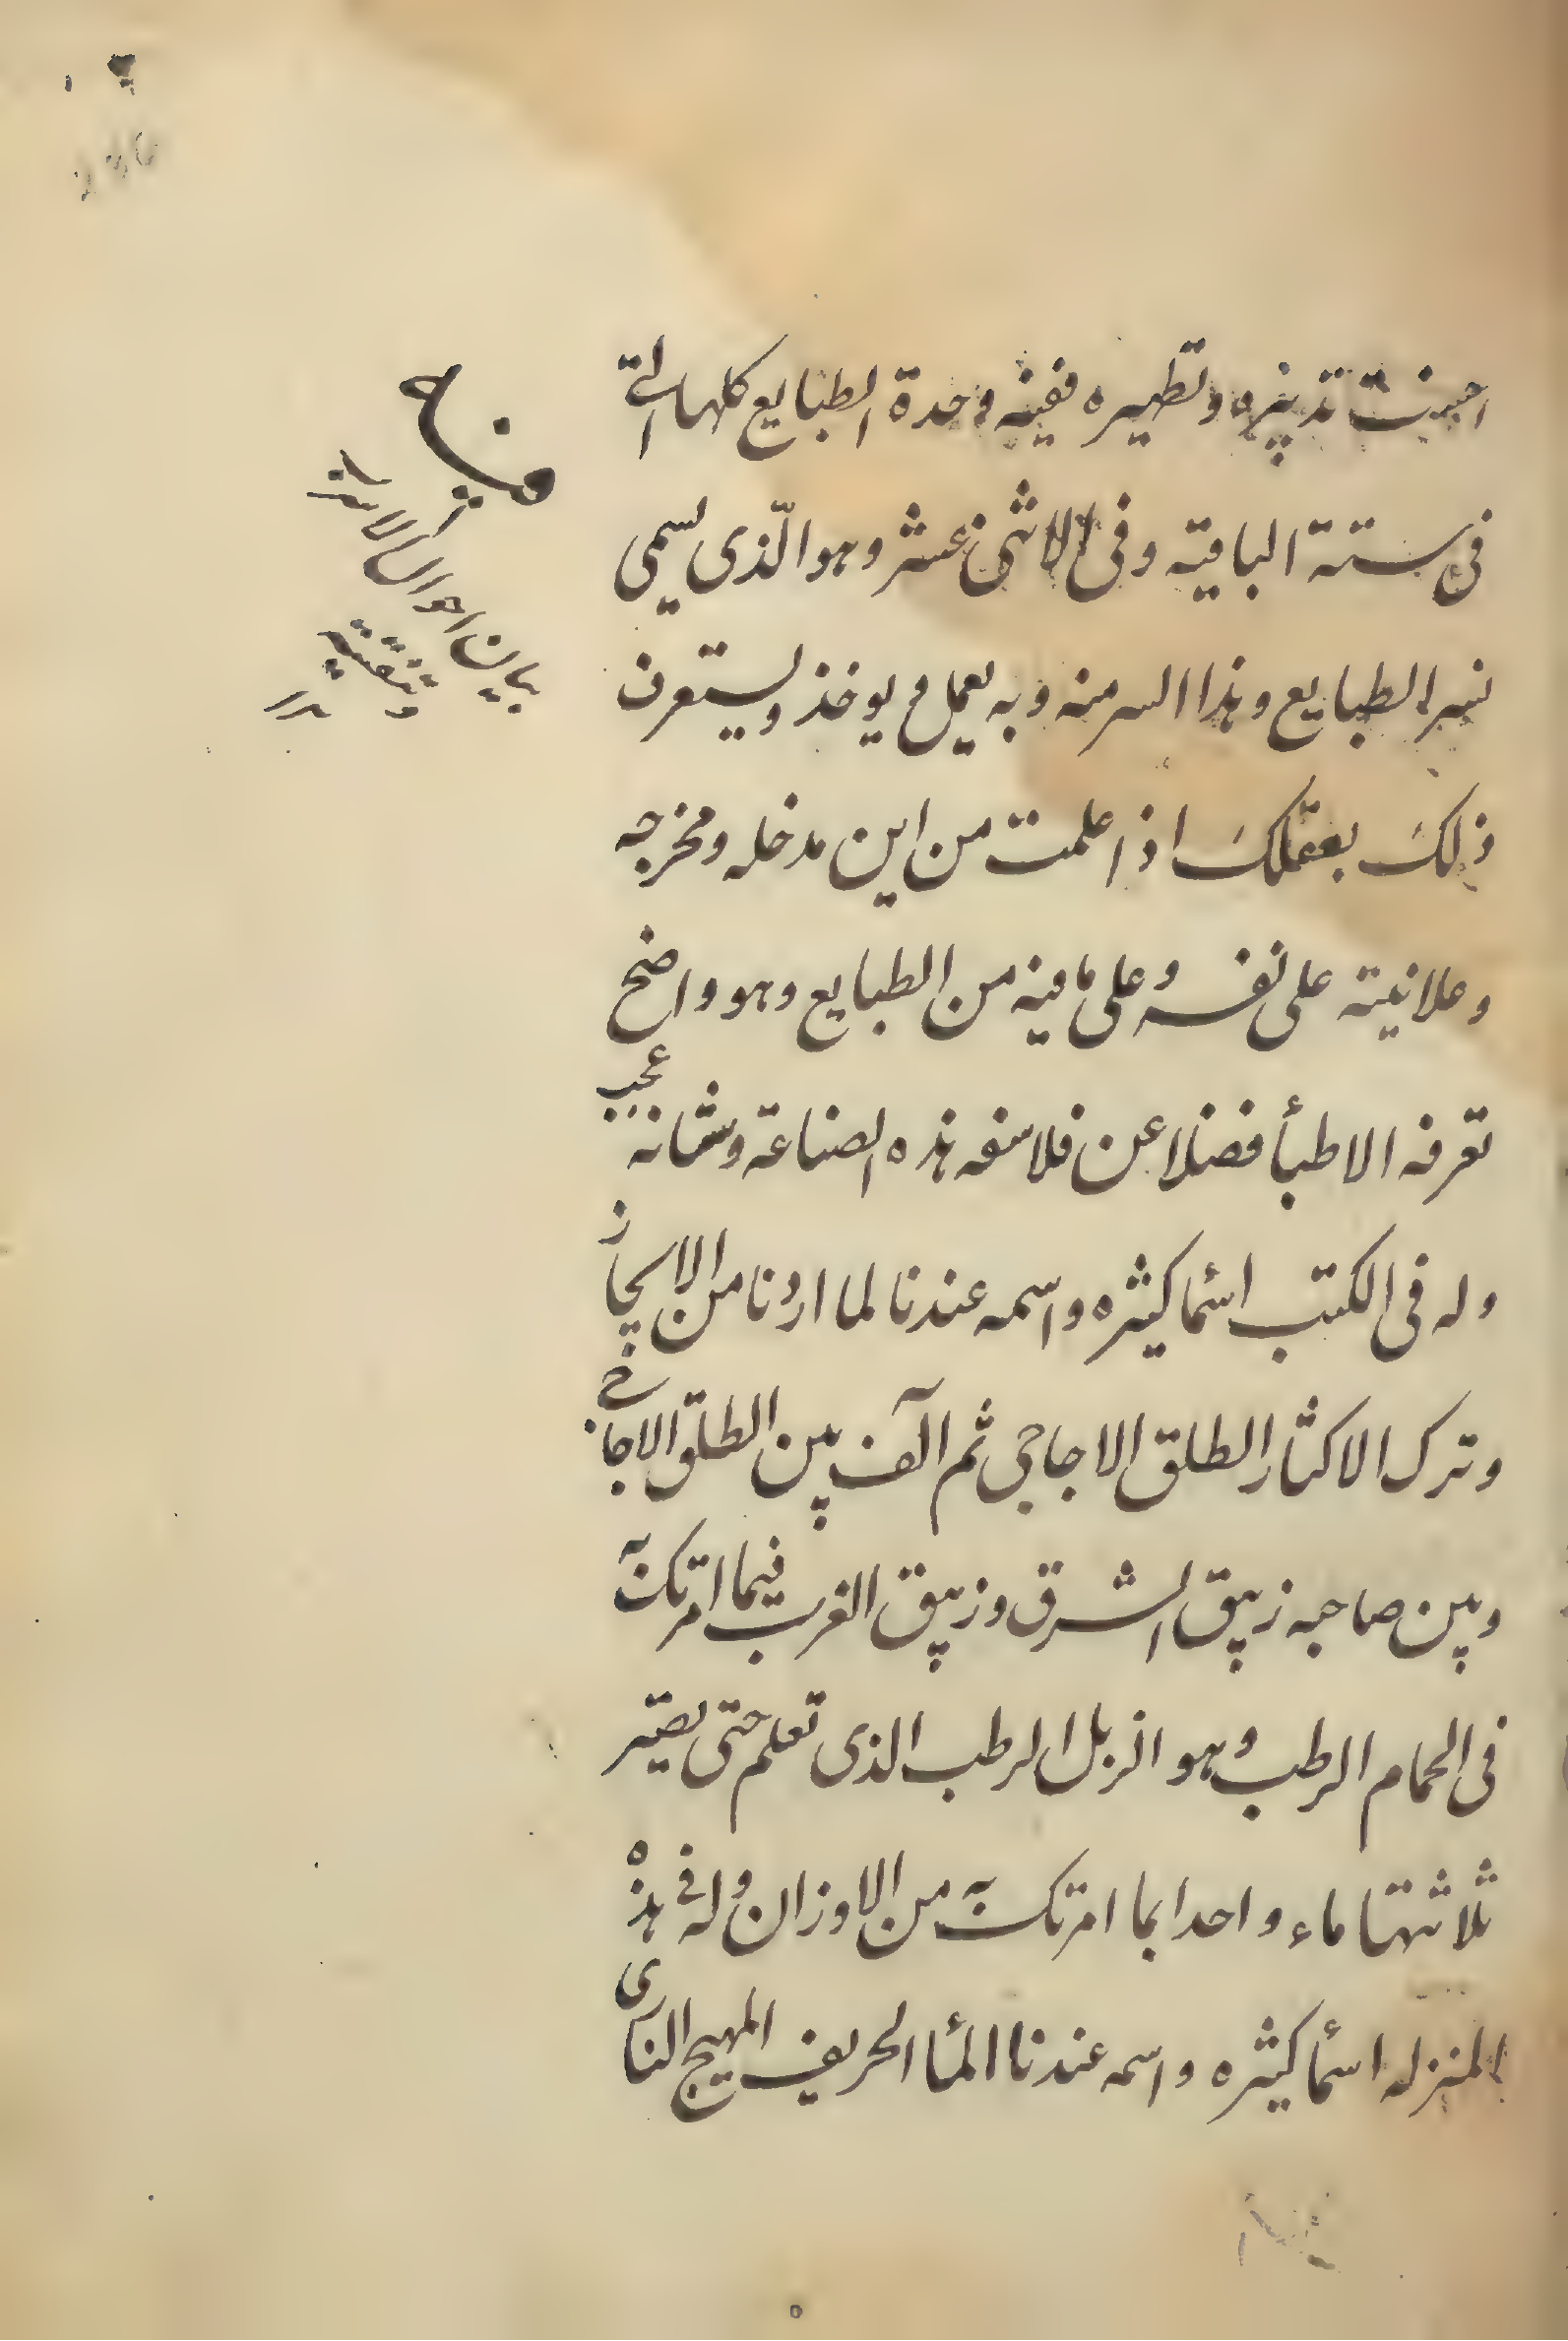 احببت تدبيره وتطهيره ففيه وحدة الطبايع كلها التى
فى ستة الباقيه وفى الاثنى عشر وهو الّذى يسمى
الطبايع وهذا السر منه وبه يعمل ويوخذ وليستعرف
ذلكَ بعقلكَ اذا علمت من اين مدخله ومخرجه
وعلانيته على نفسه وعلى ما فيه من الطبايع وهو واضح
تعرفه الاطبأ فضلا عن فلاسفه هذه الصناعة وشانه عجيب
وله فى الكتب اسمأ كثيره واسمه عندنا لما اردنا من الايجاز
وترك الاكثار الطلق الاجاجى ثم الّف بين الطلق الاجاجى
وبين صاحبه زيبق الشرق وزيبق الغرب فيما امرتك به
فى الحمام الرطب وهو الزبل الرطب الذى تعلم حتى يصير
ثلاثتها ماء واحدا بما امرتك به من الاوزان وله فى هذه
المنزله اسمأ كثيره واسمه عندنا المأ الحريف المهيج النارى
بيان احوال
وتنقيته